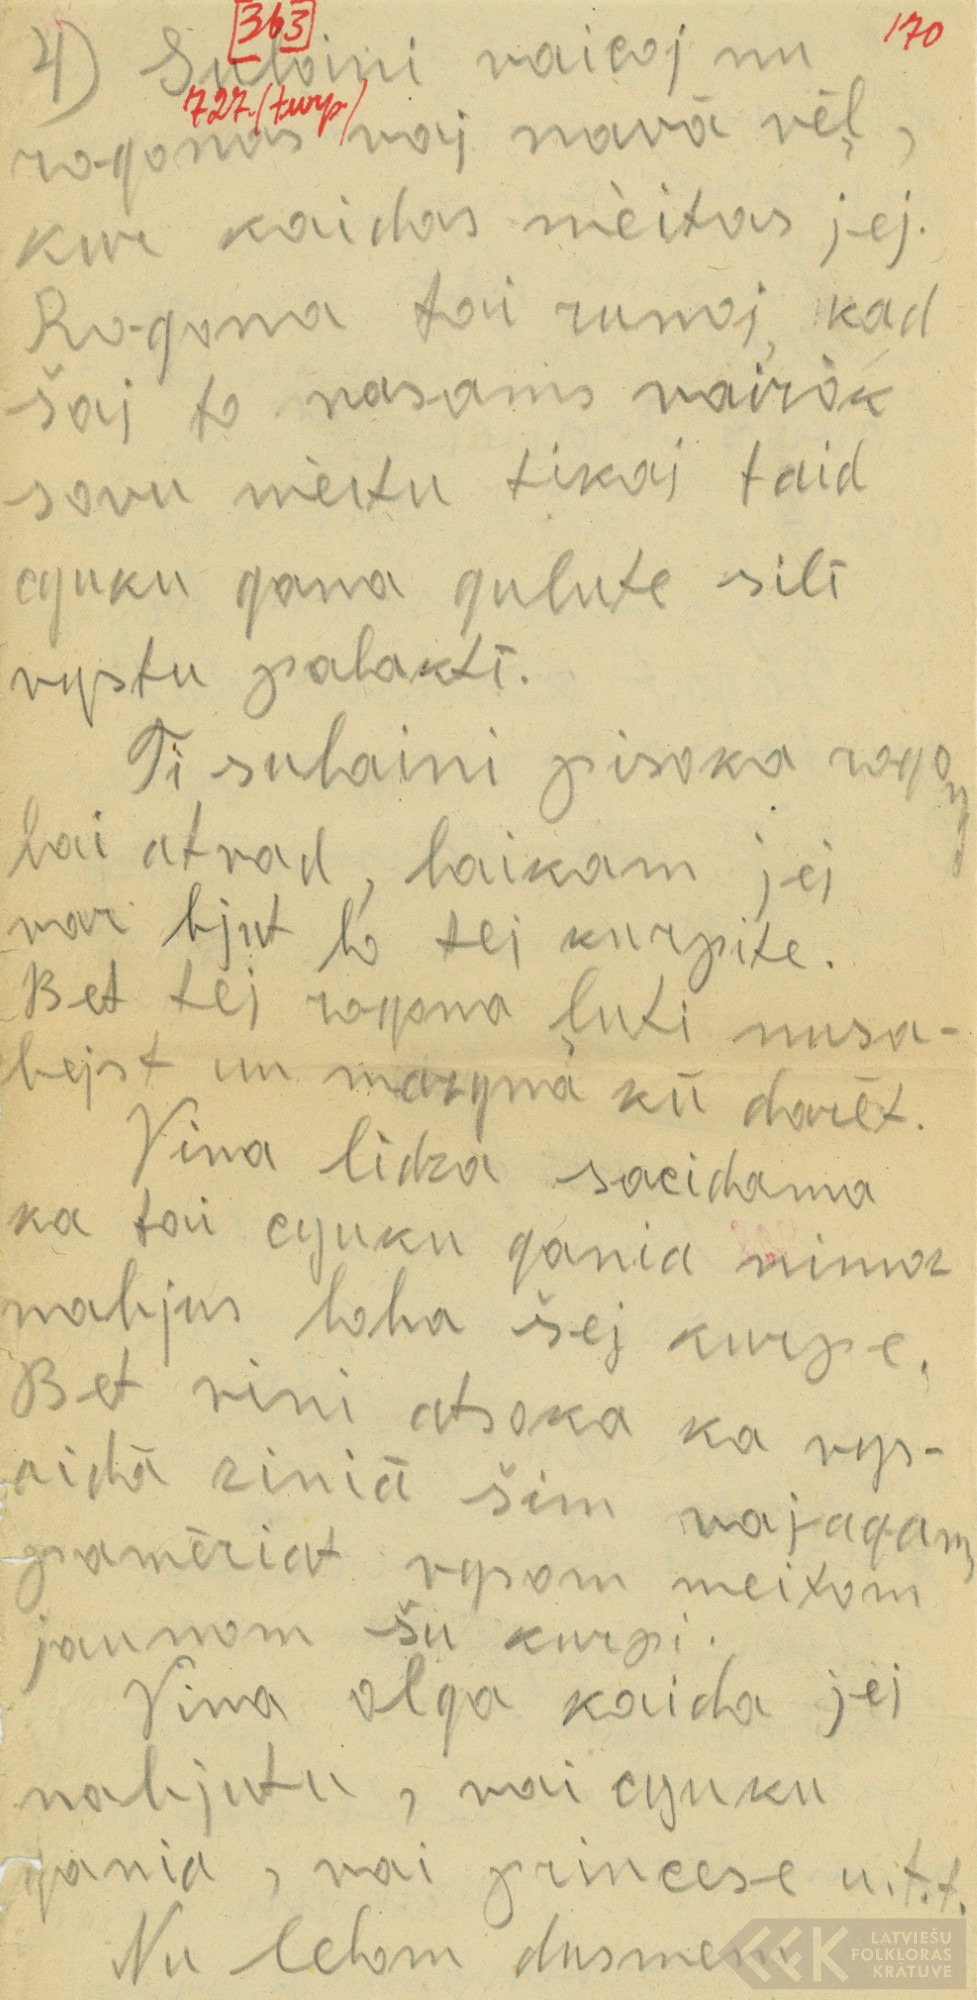 363
170
4) Suloini vaicoj nu
727. (turp.)
rogonas voj navā vēļ,
kur kaidas mèitas jej.
Rogona toi runoj, kad
šaj to nasams vairòk
sovu mèitu tikaj taid
cyuku gana gulute silī
vystu palaktī.
Ti sulaini pisoka rogon
lai atrad, laikam jei
var bjut lo tej kurpite.
Bet tej rogona ļuti nusa-
bejst un mazynā kū darēt.
Vina lidza sacidama
ka toi cyuku gania nimoz
nabjus loba šej kurpe.
Bet vini atsoka ka vys-
aidā ziniā šim vajagam
pamēriat vysom meitom
jaunom šu kurpi.
Vina olga kaida jei
nabjutu, vai cyuku
gania, vai princese u.t.t.
Nu lelom dusmem
LATVIEŠU
FOLKLORAS
KRĀTUVE